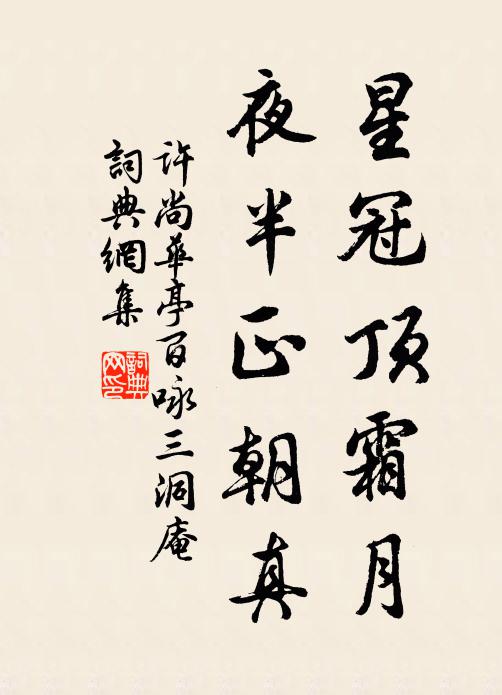 星冠顶霜月
夜半正朝真
许尚华亭百咏三洞庵
词典网集
词典网印